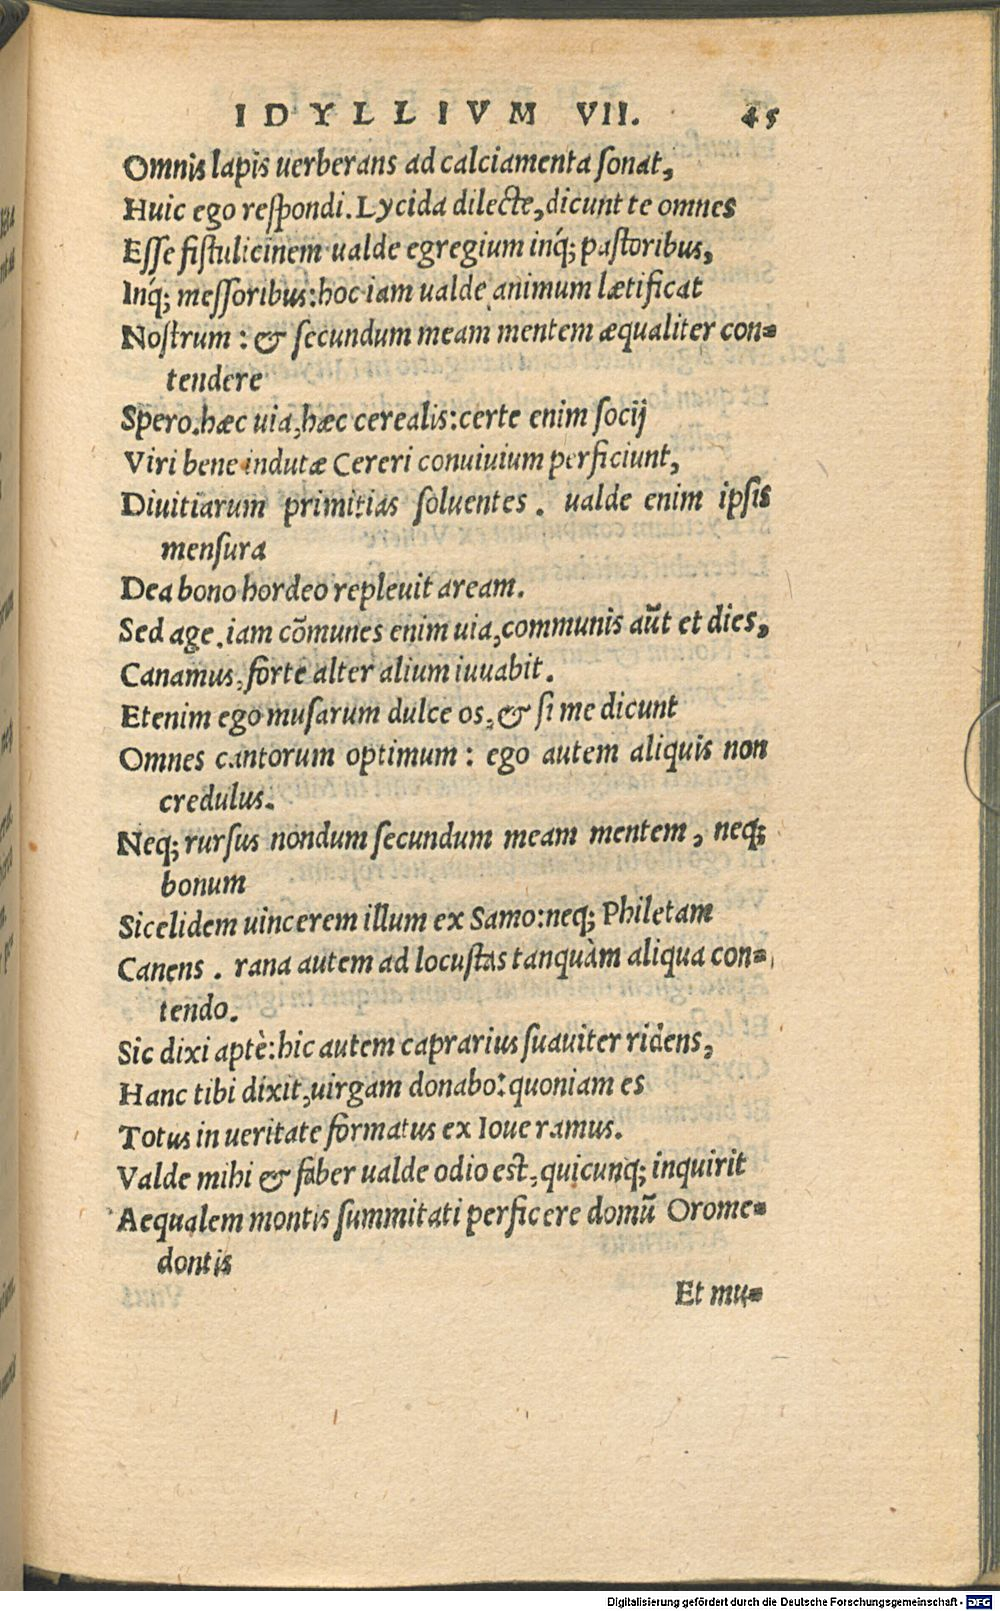 IDYLLIVM VII. 45
Omnis lapis uerberans ad calciamenta ſonat,
Huic ego reſpondi. Lycida dilecte, dicunt te omnes
Eſſe fiſtulicinem ualde egregium inq́; paſtoribus,
Inq́; meſſoribus: hoc iam ualde animum lætificat
Noſtrum : & ſecundum meam mentem æqualiter con-
tendere
Spero. hæc uia, hæc cerealis: certe enim ſocij
Viri bene indutæ Cereri conuiuium perficiunt,
Diuitiarum primitias ſoluentes . ualde enim ipſis
menſura
Dea bono hordeo repleuit aream.
Sed age. iam cõmunes enim uia, communis aũt et dies,
Canamus, forte alter alium iuuabit.
Etenim ego muſarum dulce os, & ſi me dicunt
Omnes cantorum optimum : ego autem aliquis non
credulus.
Neq; rurſus nondum ſecundum meam mentem , neq;
bonum
Sicelidem uincerem illum ex Samo: neq; Philetam
Canens . rana autem ad locuſtas tanquàm aliqua con-
tendo.
Sic dixi aptè: hic autem caprarius ſuauiter ridens,
Hanc tibi dixit, uirgam donabo: quoniam es
Totus in ueritate formatus ex Ioue ramus.
Valde mihi & faber ualde odio eſt, quicunq; inquirit
Aequalem montis ſummitati perficere domũ Orome-
dontis
Et mu-
Digitalisierung gefördert durch die Deutsche Forschungsgemeinschaft - DFG